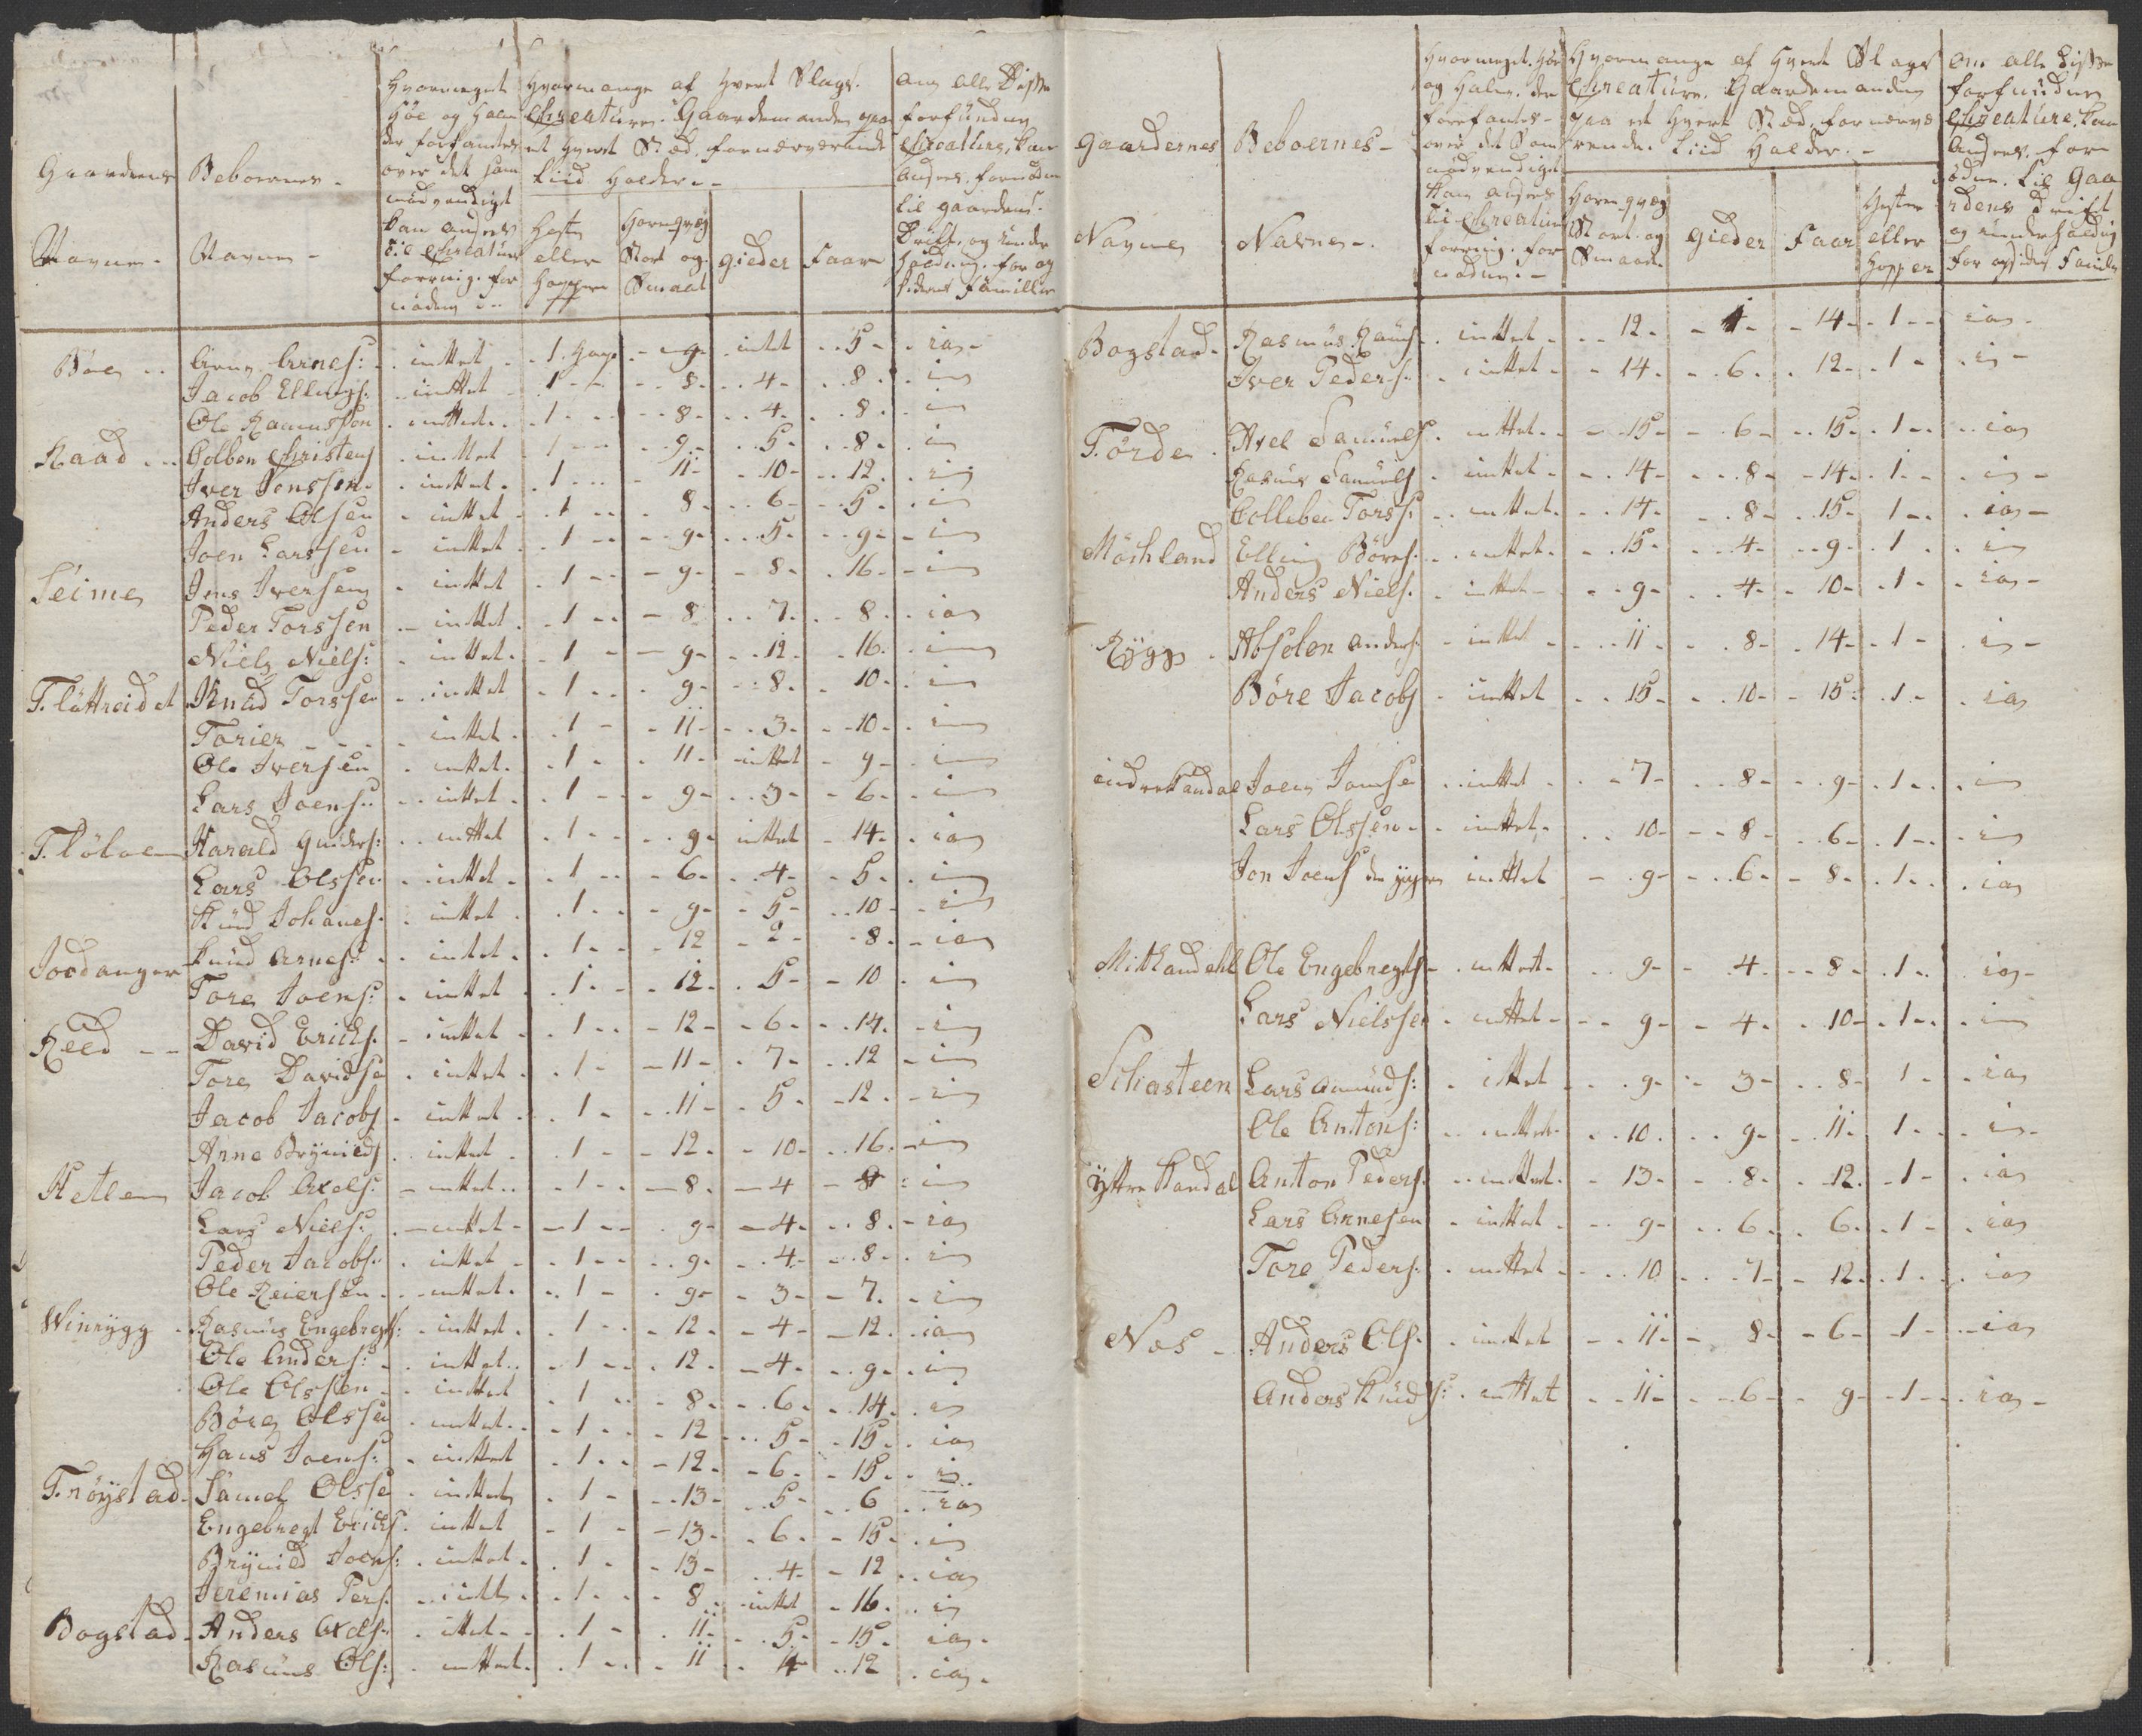 Gaardens Navne -
Beboernes - Navne -
Hvormeget Høe og Halm der forfantes over det som nødvendigt kan ansees til Creature forring fornøden
Hvormange af hvert Slags Creature Gaardemanden paa et hvert Sted, for nærværende tiid holder. -
Heste eller Hopper
Hornqvæg Stort og Smaat
gieder
Faar
om alle disse forfundne Creature, kan ansees fornøden til gaardens Drift, og underholdning for og Familie
Böe - - Arne Arnes: - inttet - 1 hop - 9 - intet - 5 - ia -
Jacob Ellings: inttet - 1 - - 8 - 4 - 8 - ia
Ole Ramussøn - inttet - 1 - - 8 - 4 - 8 - ia
Raad - - Colben Christens - inttet - 1 - - 9 - 5 - 8 - ia
Iver Jonssen - inttet - 1 - - 11 - 10 - 12 - ia
Anders Olsen - inttet - 1 - - 8 - 6 - 5 - ia
Joen Larssen - inttet - 1 - - 9 - 5 - 9 - ia
Seime Jens Iversen - inttet - 1 - - 9 - 8 - 16 - ia
Peder Torssen - inttet - 1 - - 8 - 7 - 8 - ia
Niels Niels: - inttet - 1 - - 9 - 12 - 16 - ia
Flöttreidet Knud Torssen - inttet - 1 - - 9 - 8 - 10 - ia
Torier - - - inttet - 1 - 11 - 3 - 10 - ia
Ole Iversen - inttet - 1 - 11 - inttet - 9 - ia
Lars Joens: - inttet - 1 - - 9 - 3 - 6 - ia
Flöloe Harald Gunders: - inttet - 1 - - 9 - inttet - 14 - ia
Lars Olssen - inttet - 1 - - 6 - 4 - 5 - ia
Knud Johanes: - inttet - 1 - - 9 - 5 - 10 - ia
Jordanger Knud Arnes: - inttet - 1 - - 12 - 2 - 8 - ia
Tore Joens: - inttet - 1 - - 12 - 5 - 10 - ia
Reed - - David Ericks: - inttet - 1 - - 12 - 6 - 14 - ia
Tore Davidse - inttet - 1 - - 11 - 7 - 12 - ia
Jacob Jacobs - inttet - 1 - - 11 - 5 - 12 - ia
Anne Brÿnilds - inttet - 1 - - 12 - 10 - 16 - ia
Hetle Jacob Axels: - inttet - 1 - - 8 - 4 - 8 - ia
Lars Niels: - inttet - 1 - - 9 - 4 - 8 - ia
Peder Jacobs: - inttet - 1 - - 9 - 4 - 8 - ia
Ole Reiersen - inttet - 1 - 9 - 3 - 7 - ia
Winrÿgg - Rasmus Engebregts: - inttet - 1 - - 12 - 4 - 12 - ia
Ole Anders: - inttet - 1 - - 12 - 4 - 9 - ia
Ole Olssen - inttet - 1 - - 8 - 6 - 14 - ia
Böre Olssen - inttet - 1 - - 12 - 5 - 15 - ia
Hans Joens: - inttet - 1 - - 12 - 6 - 15 - ia
Frøÿstad - Samel Olsse - inttet - 1 - 13 - 5 - 6 - ia
Engebregt Ericks: inttet - 1 - 13 - 6 - 15 - ia
Brÿnild Joens: - inttet - 1 - 13 - 4 - 12 - ia
Jeremias Pers: - intet - 1 - - 8 - inttet - 16 - ia
Bogstad - Anders Axels: - ittet - 1 - - 11 - 5 - 15 - ia -
Rasmus Ols: - inttet - 1 - - 11 - 4 - 12 - ia -
Gaardernes Navne
Beboernes - Navne -
Hvormeget Høe og Halm der forefantes over det som nødvendigt kan ansees til Creature forring for nøden -
Hvormange af hvert Slags Creature Gaardemanden paa et hvert Sted, for nærværende tiid holder. -
Hornqvæg Stort og Smaat
gieder
Faar
Hester eller Hopper
om alle disse forfundne Creature, kan ansees fornødne til Gaardens Drift og underholding for Familie
Bogstad - Rasmus Rams - inttet - 12 - 1 - 14 - 1 - ia -
Iver Peders: - inttet - 14 - 6 - 12 - 1 - ia -
Förde - Axel Samuels - inttet - 15 - 6 - 15 - 1 - ia
Rasmus Samuels - inttet - 14 - 8 - 14 - 1 - ia -
Colleben Torss: - inttet - 14 - 8 - 15 - 1 - ia -
Möchland Elling Böres: - inttet - 15 - 4 - 9 - 1 - ia
Anders Niels: - inttet - 9 - 4 - 10 - 1 - ia -
Rÿgg - Abselon anders: - inttet - 11 - 8 - 14 - 1 - ia -
Böre Jacobs - inttet - 15 - 10 - 15 - 1 - ia
indre Kandal Joen Jonsse - inttet - 7 - 8 - 9 - 1 - ia
Lars Olssen - inttet - 10 - 8 - 6 - 1 - ia
Jon Joens den yngre inttet - 9 - 6 - 8 - 1 - ia
Mitkandahl Ole Engebregts - inttet - 9 - 4 - 8 - 1 - ia -
Lars Nielssen - inttet - 9 - 4 - 10 - 1 - ia
Schasteen Lars amunds: - ittet - 9 - 3 - 8 - 1 - ia
Ole Antons: - inttet - 10 - 9 - 11 - 1 - ia -
ÿttre Kandal Anton Peders: - inttet - 13 - 8 - 12 - 1 - ia
Lars Arnesen - inttet - 9 - 6 - 6 - 1 - ia
Tore Peders: - inttet - 10 - 7 - 12 - 1 - ia
Nos - Anders Ols: - inttet - 11 - 8 - 6 - 1 - ia
Anders Knuds: - inttet - 11 - 6 - 9 - 1 - ia -